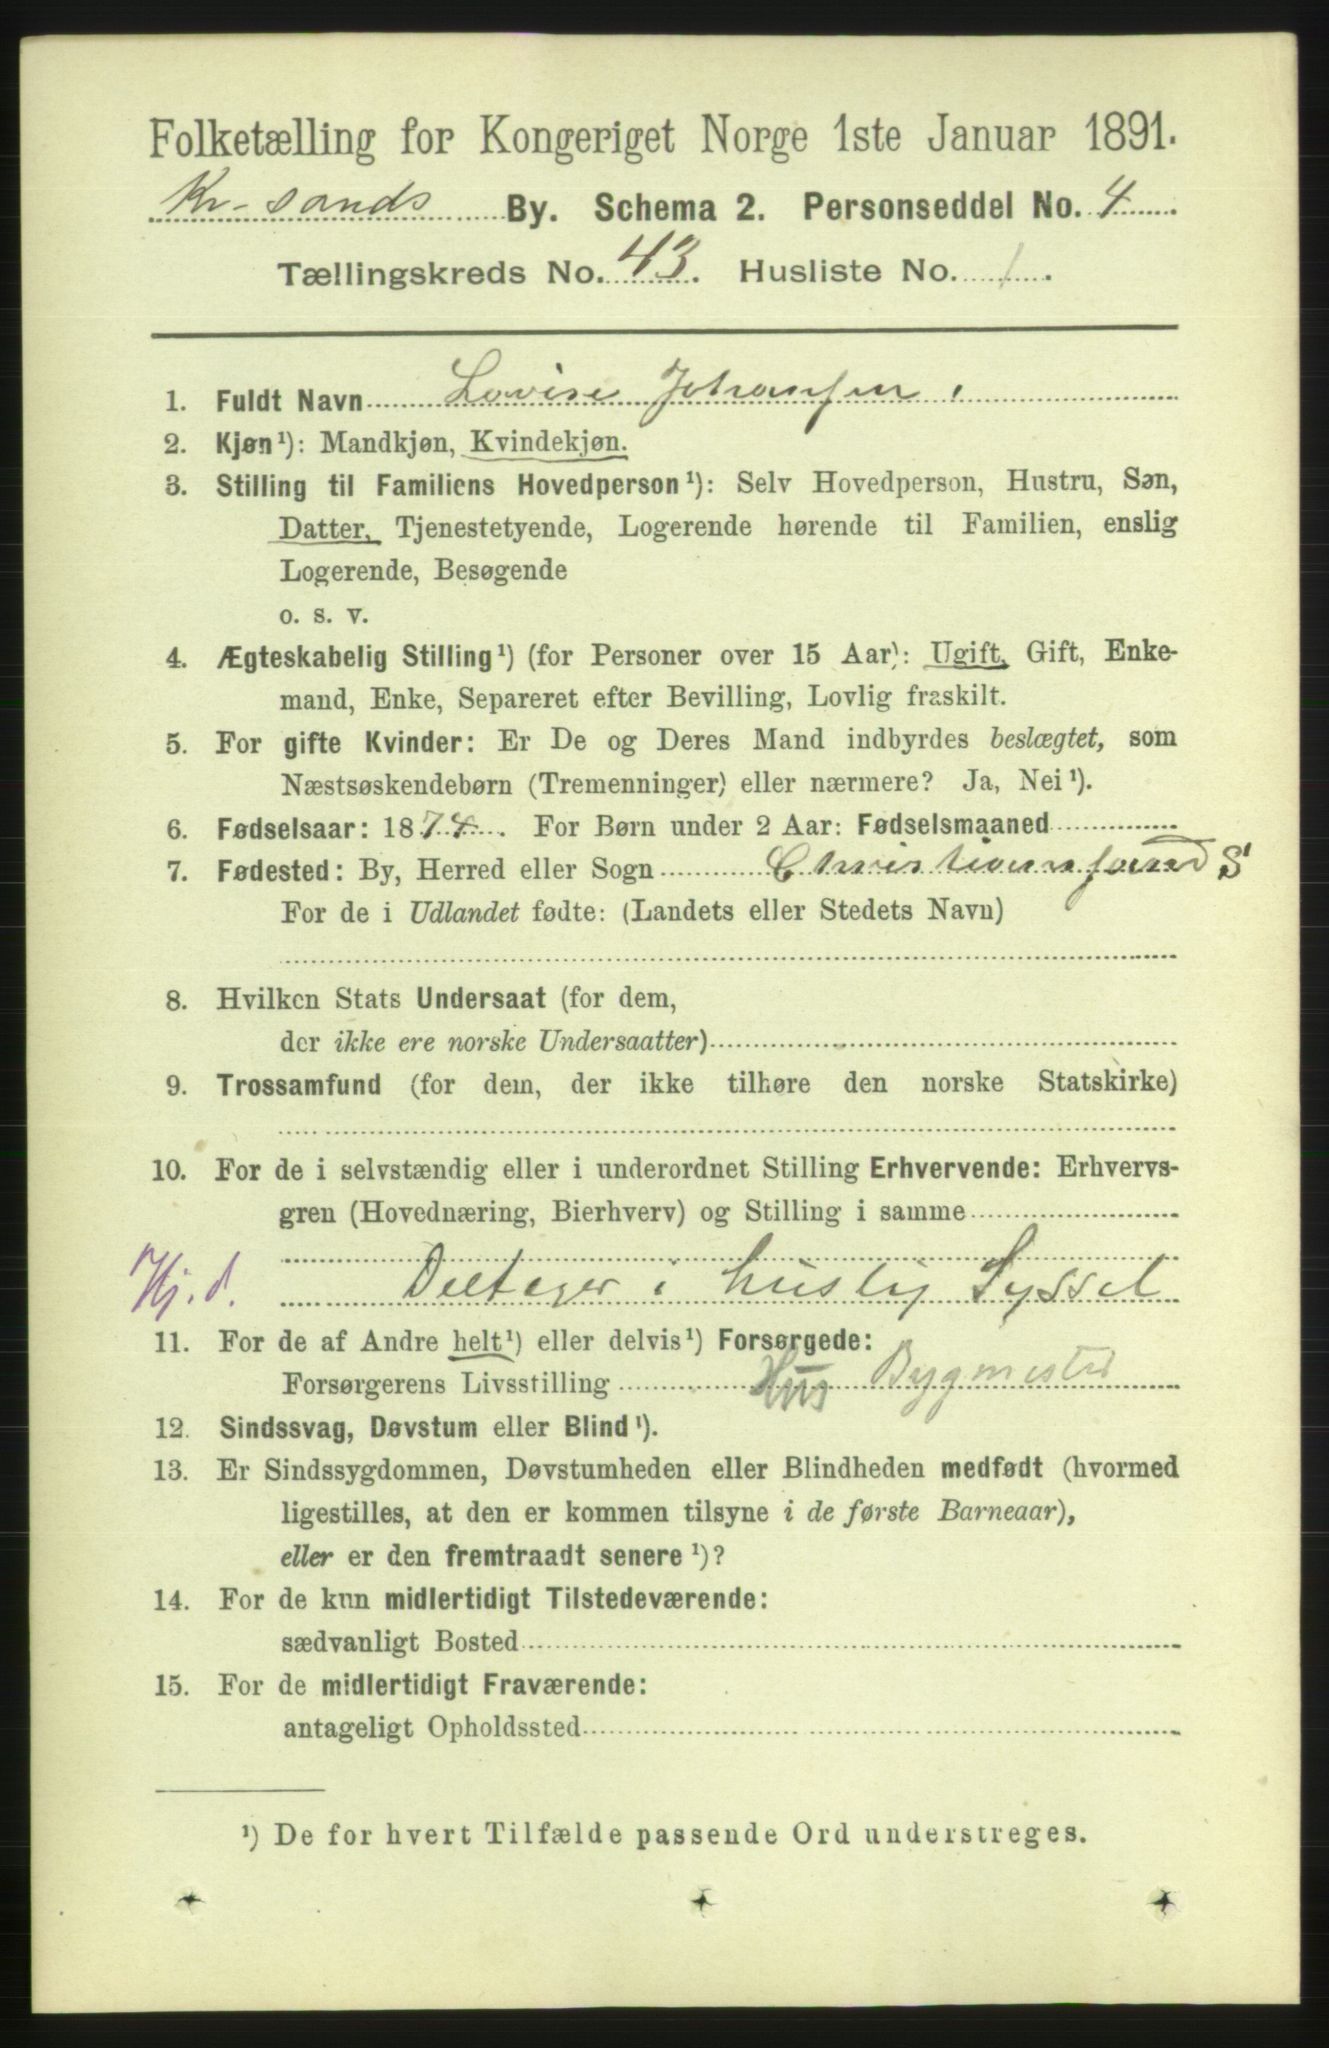 Folketælling for Kongeriget Norge 1ste Januar 1891.
Kr-sands By. Schema 2. Personseddel No. 4
Tællingskreds No. 43. Husliste No. 1.
1. Fuldt Navn Lovise Johansen
2. Kjøn¹): Mandkjøn, Kvindekjøn.
3. Stilling til Familiens Hovedperson¹): Selv Hovedperson, Hustru, Søn,
Datter, Tjenestetyende, Logerende hørende til Familien, enslig
Logerende, Besøgende
o. s. v.
4. Ægteskabelig Stilling¹) (for Personer over 15 Aar): Ugift, Gift, Enke-
mand, Enke, Separeret efter Bevilling, Lovlig fraskilt.
5. For gifte Kvinder: Er De og Deres Mand indbyrdes beslægtet, som
Næstsøskendebørn (Tremenninger) eller nærmere? Ja, Nei¹).
6. Fødselsaar: 1874. For Børn under 2 Aar: Fødselsmaaned
7. Fødested: By, Herred eller Sogn Christiansand S
For de i Udlandet fødte: (Landets eller Stedets Navn)
8. Hvilken Stats Undersaat (for dem,
der ikke ere norske Undersaatter)
9. Trossamfund (for dem, der ikke tilhøre den norske Statskirke)
10. For de i selvstændig eller i underordnet Stilling Erhvervende: Erhvervs-
gren (Hovednæring, Bierhverv) og Stilling i samme
Hj. d. Deltager i huslig Syssel
11. For de af Andre helt¹) eller delvis¹) Forsørgede:
Forsørgerens Livsstilling Hus Bygmester
12. Sindssvag, Døvstum eller Blind¹).
13. Er Sindssygdommen, Døvstumheden eller Blindheden medfødt (hvormed
ligestilles, at den er kommen tilsyne i de første Barneaar),
eller er den fremtraadt senere¹)?
14. For de kun midlertidigt Tilstedeværende:
sædvanligt Bosted
15. For de midlertidigt Fraværende:
antageligt Opholdssted
¹) De for hvert Tilfælde passende Ord understreges.